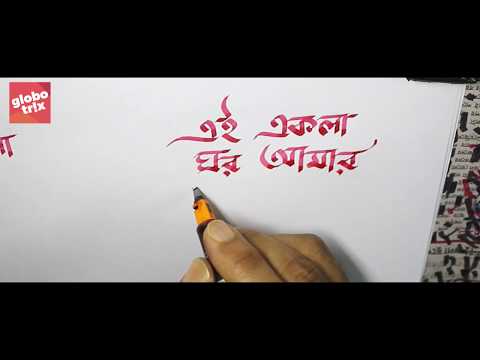 globo
trix
এই একলা
ঘর আমার